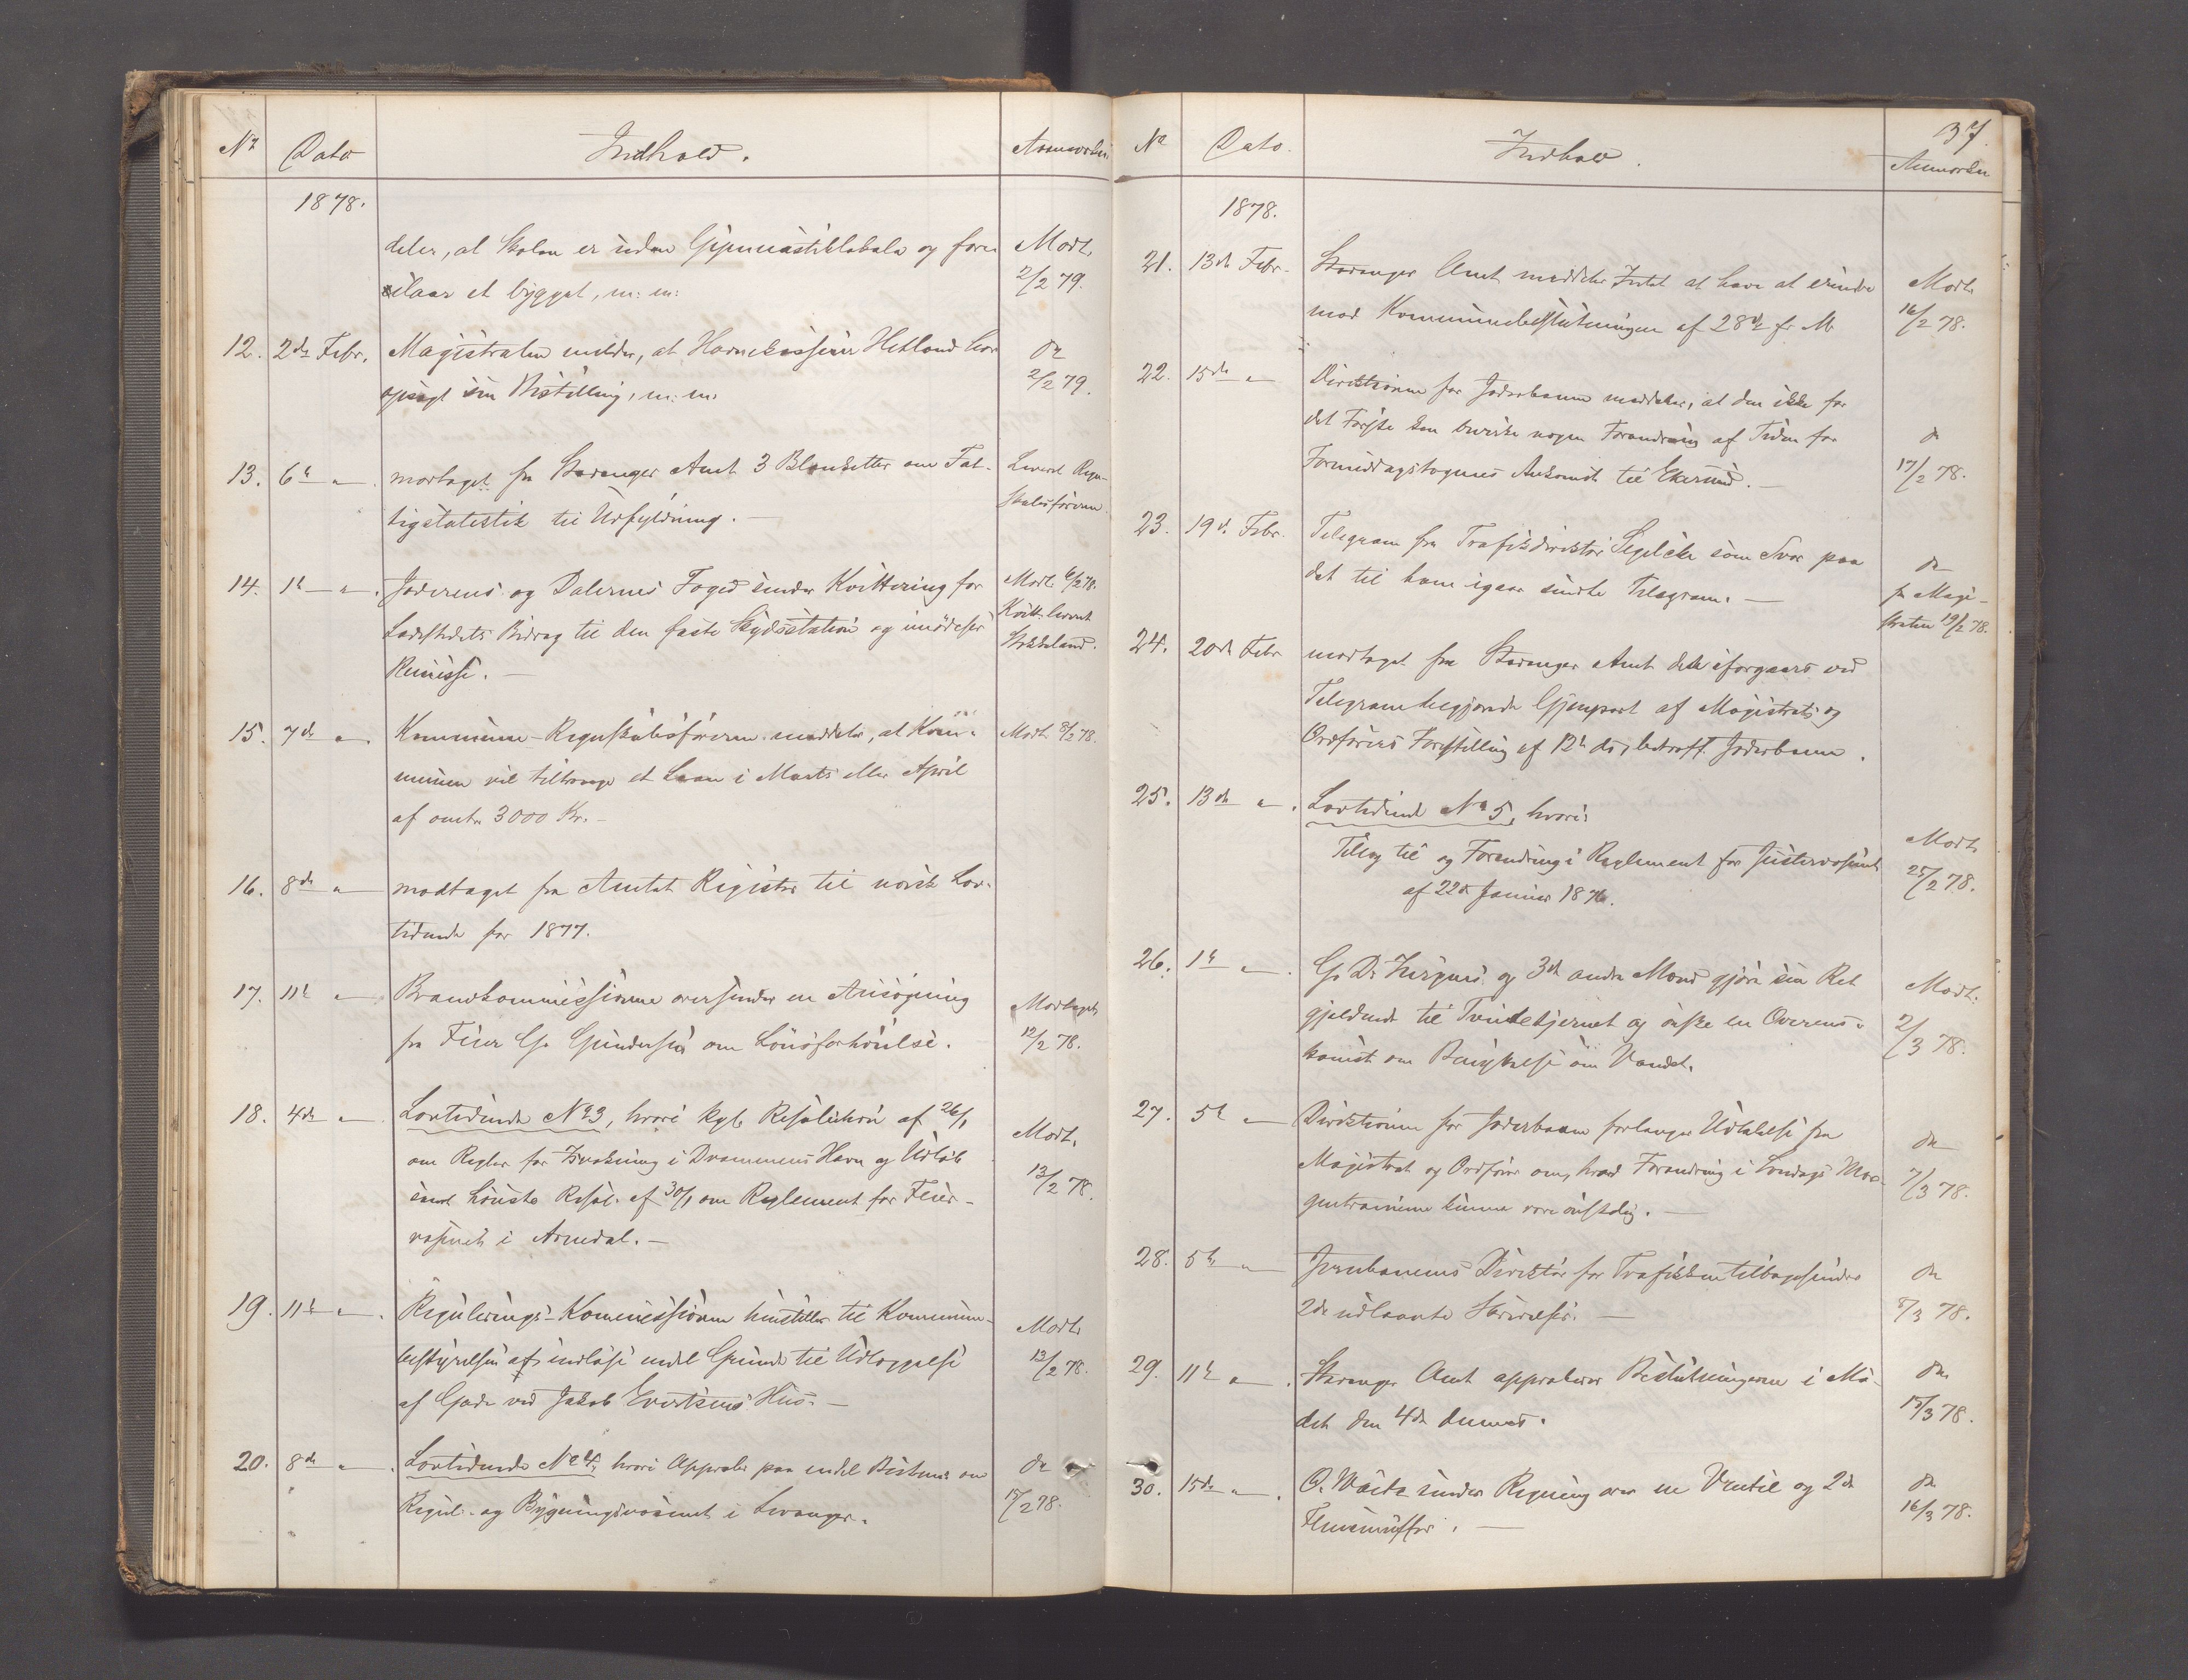 No Dato Indhold. Anmærkn.
1878.
deler, at Skolen er uden Gymnastiklokale og fore- Modt.
slaar et bygget, m: m: 2/2 79.
12. 2de Febr. Magistraten melder, at Havnekasserer Hetland har do
opsagt sin Bestilling, m: m: 2/2 79.
13. 6te " modtaget fra Stavanger Amt 3 Blanketter om Fat- Leveret Regn-
tigstatistik til Udfyldning. — skabsføreren.
14. 1te " Jæderens og Dalernes Foged sender Kvittering for Modt. 6/2 78.
Ladestedets Bidrag til den faste Skydsstation og imødeser Kvitt. leveret
Remisse. — Stokkeland.
15. 7de " Kommune-Regnskabsføreren meddeler, at Kom- Modt. 8/2 78.
munen vil tiltrænge et Laan i Marts eller April
af omtr. 3000 Kr. —
16. 8de " modtaget fra Amtet Register til norsk Lov-
tidende for 1877.
17. 11te " Brandkommissionen oversender en Ansøgning Modtaget
fra Feier G. Gundersen om Lønsforhøielse. 12/2 78.
18. 4de " Lovtidende No 3, hvori kgl. Resolution af 26/1 Modt.
om Regler for Israakning i Drammens Havn og Udløb 13/2 78.
samt høieste Resol. af 30/1 om Reglement for Feier-
væsenet i Arendal. —
19. 11te " Regulerings-Kommissionen henstiller til Kommune- Modt.
bestyrelsen at indløse endel Grund til Udlæggelse 13/2 78.
af Gade ved Jakob Evertsens Hus. —
20. 8de " Lovtidende No 4, hvori Approb. paa endel Bestem. om do
Regul.- og Bygningsvæsenet i Levanger. 15/2 78.
37.
No Dato. Indhold. Anmærkn
1878.
21. 13de Febr. Stavanger Amt meddeler Intet at have at erindre Modt.
mod Kommunebeslutningen af 28de f. M. 16/2 78.
22. 15de " Direktionen for Jæderbanen meddeler, at den ikke for
det Første kan bevirke nogen Forandring af Tiden for do
Formiddagstogenes Ankomst til Ekersund. — 17/2 78.
23. 19de Febr. Telegram fra Trafikdirektør Segelcke som Svar paa do
det til ham igaar sendte Telegram. — fra Magi-
straten 19/2 78.
24. 20de Febr modtaget fra Stavanger Amt det iforgaars ved
Telegram begjærede Gjenpart af Magistrats og
Ordførers Forestilling af 12te ds, betræff. Jæderbanen.
25. 13de " Lovtidende No 5, hvori: Modt.
Tillæg til og Forandring i Reglement for Justervæsenet 25/2 78.
af 22de Januar 1876.
26. 1te " G. D. og 3de andre Mænd gjøre sin Ret Modt.
gjeldende til Tvedtetjernet og ønske en Overens- 2/3 78.
komst om Benyttelse om Vandet.
27. 5te " Direktionen for Jæderbanen forlanger Udtalelse fra do
Magistrat og Ordfører om, hvad Forandring i Søndags Mor- 7/3 78.
gentrainene kunne være ønskelig. —
28. 5te " Jernbanens Direktør for Trafikken tilbagesender do
2de udlaante Skrivelser. — 8/3 78.
29. 11te " Stavanger Amt approberer Beslutningerne i Mø- do
det den 4de dennes. 15/3 78.
30. 15de " O. sender Regning over en Ventil og 2de do
16/3 78.